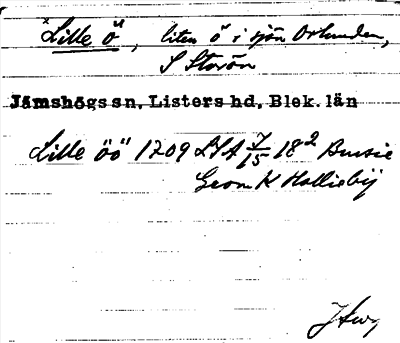 *Lille ö, liten ö i sjön Orlunden,
S Storön
Jämshögs sn, Listers hd, Blek. län
Lille öö 1709 LSA 7/15 18² Bursie
Geom K Hallieby